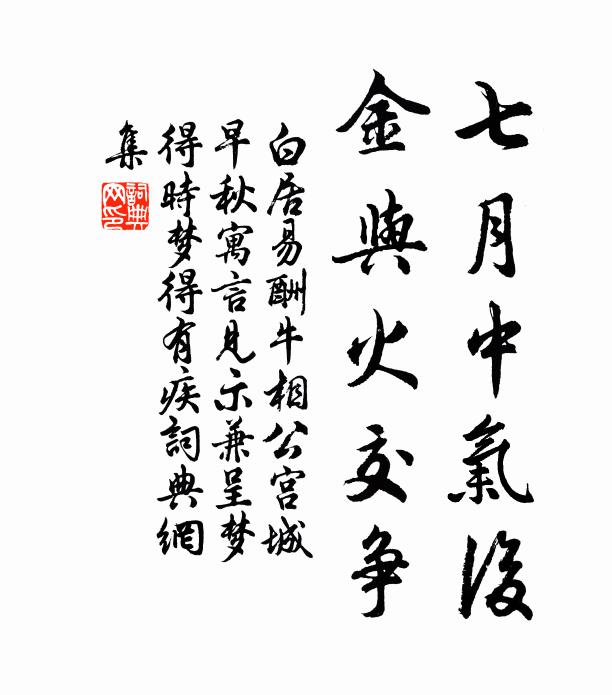 七月中氣後
金與火交争
白居易酬牛相公宫城
早秋寓言見示兼呈梦
得時梦得有疾詞典網
集
詞典
网印